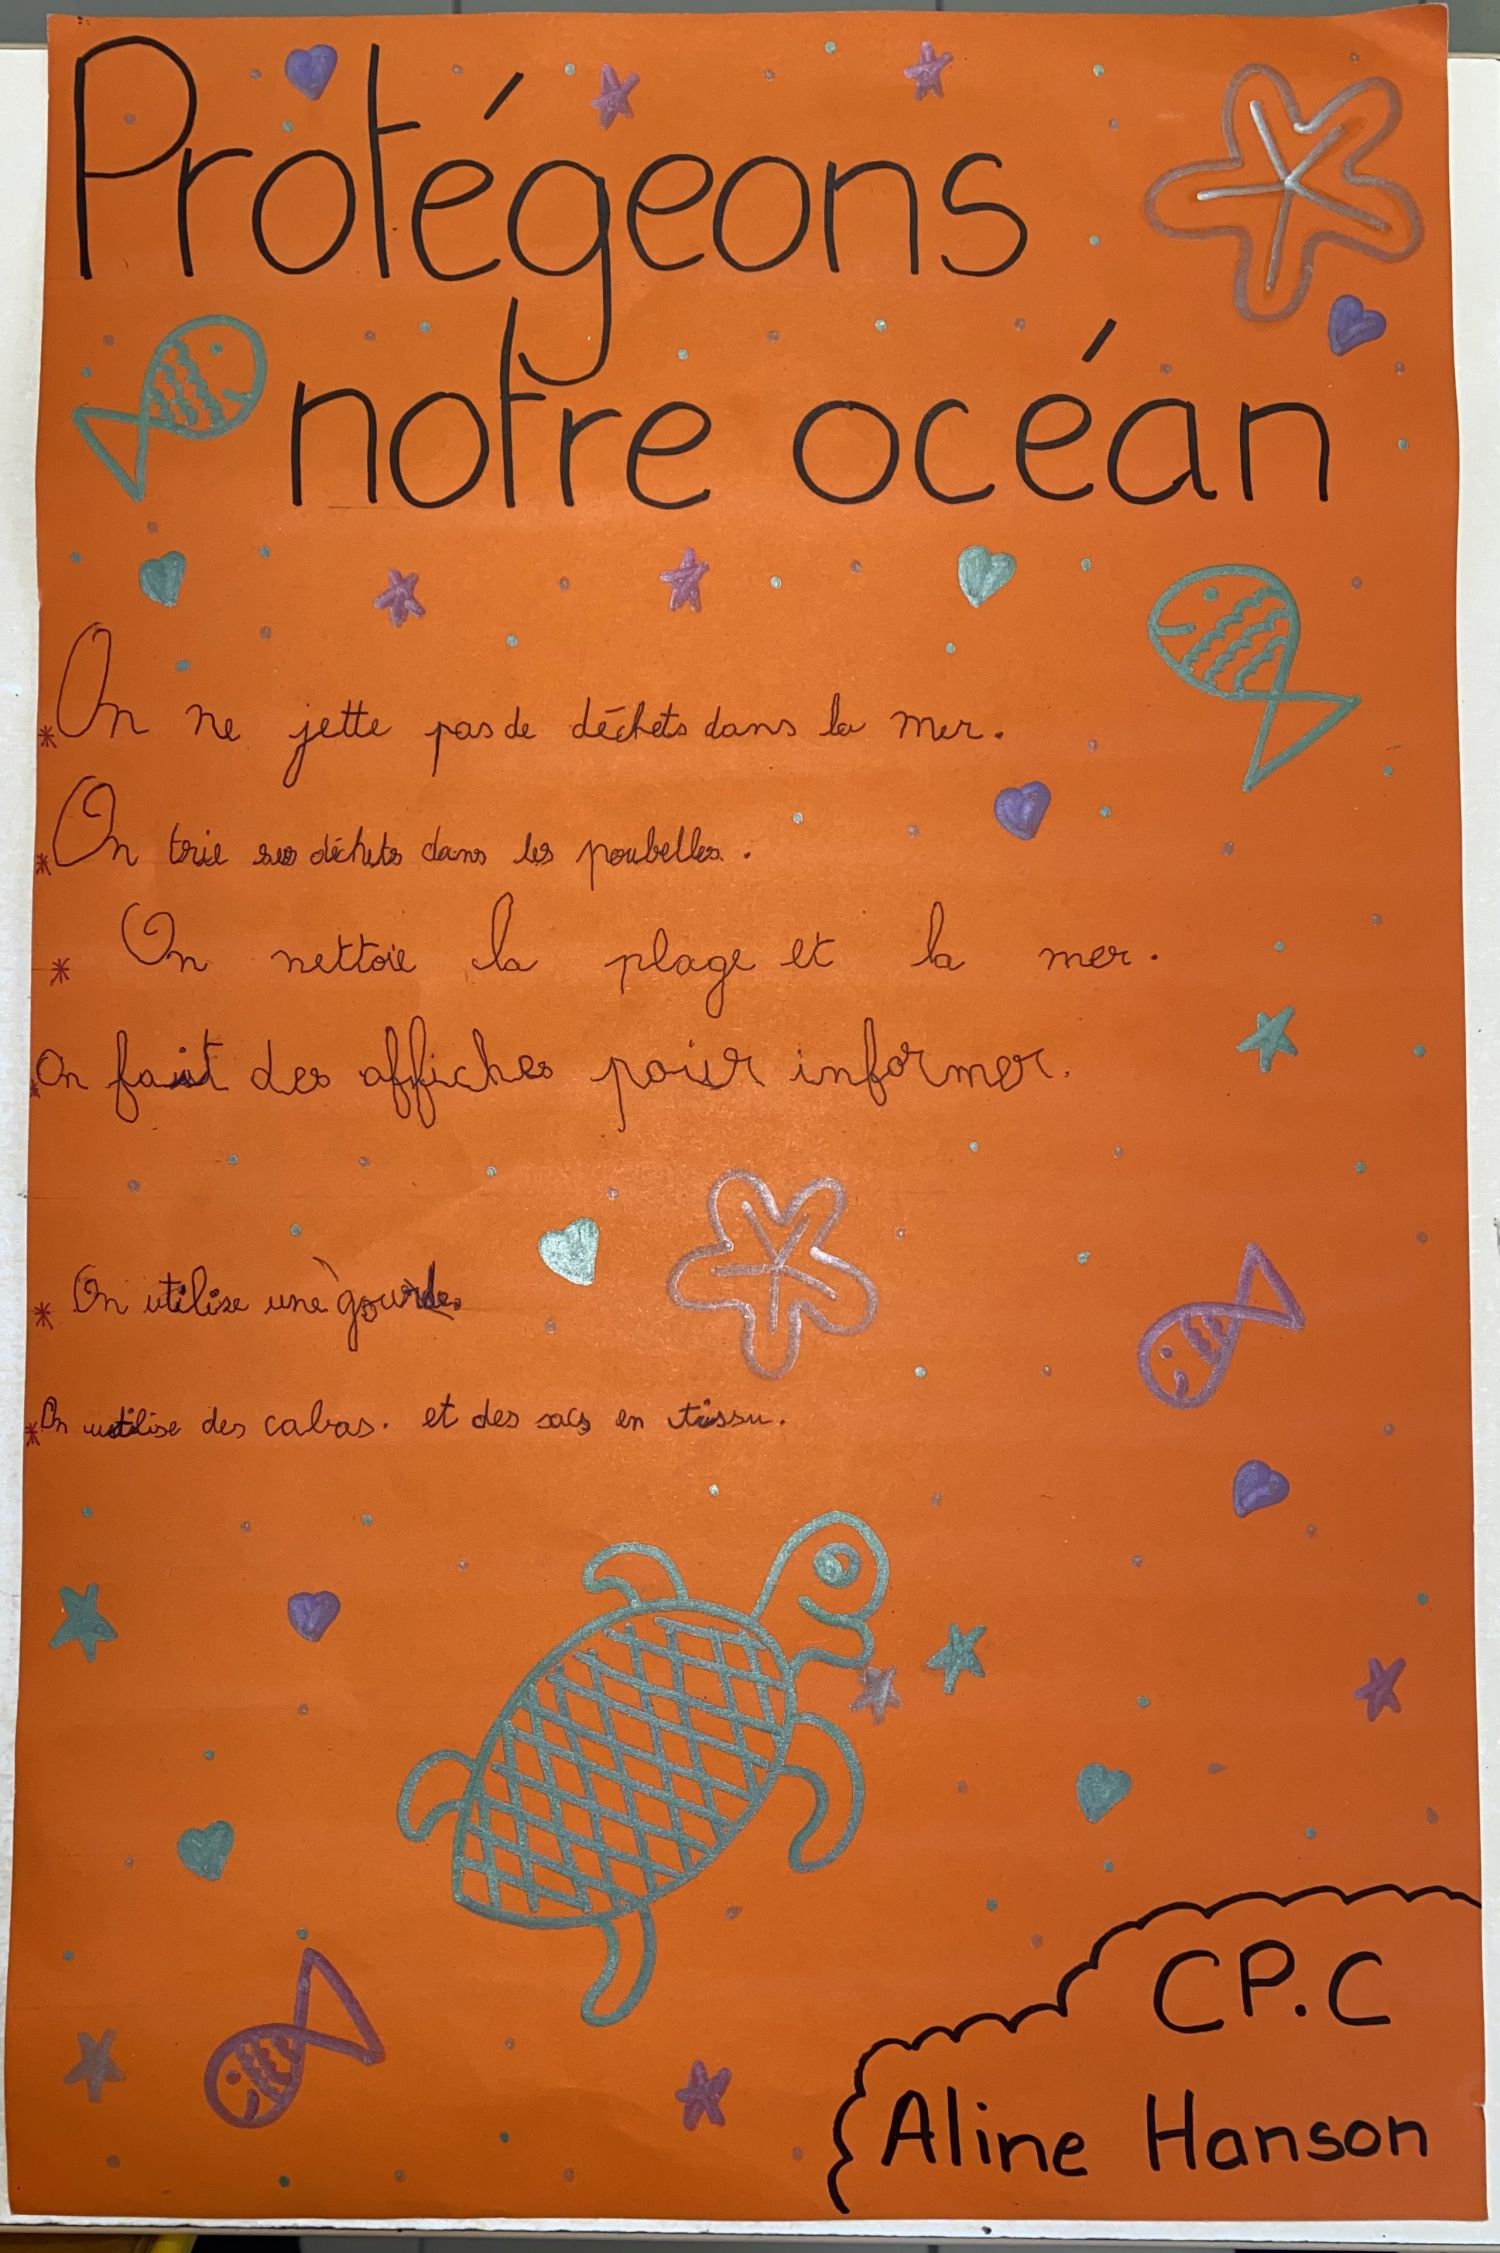 Protégeons
notre océan
* On ne jette pas de déchets dans la mer.
* On trie ses déchets dans les poubelles.
* On nettoie la plage et la mer.
* On fait des affiches pour informer.
* On utilise une gourde.
* On utilise des cabas. et des sacs en tissu.
CP.C
Aline Hanson